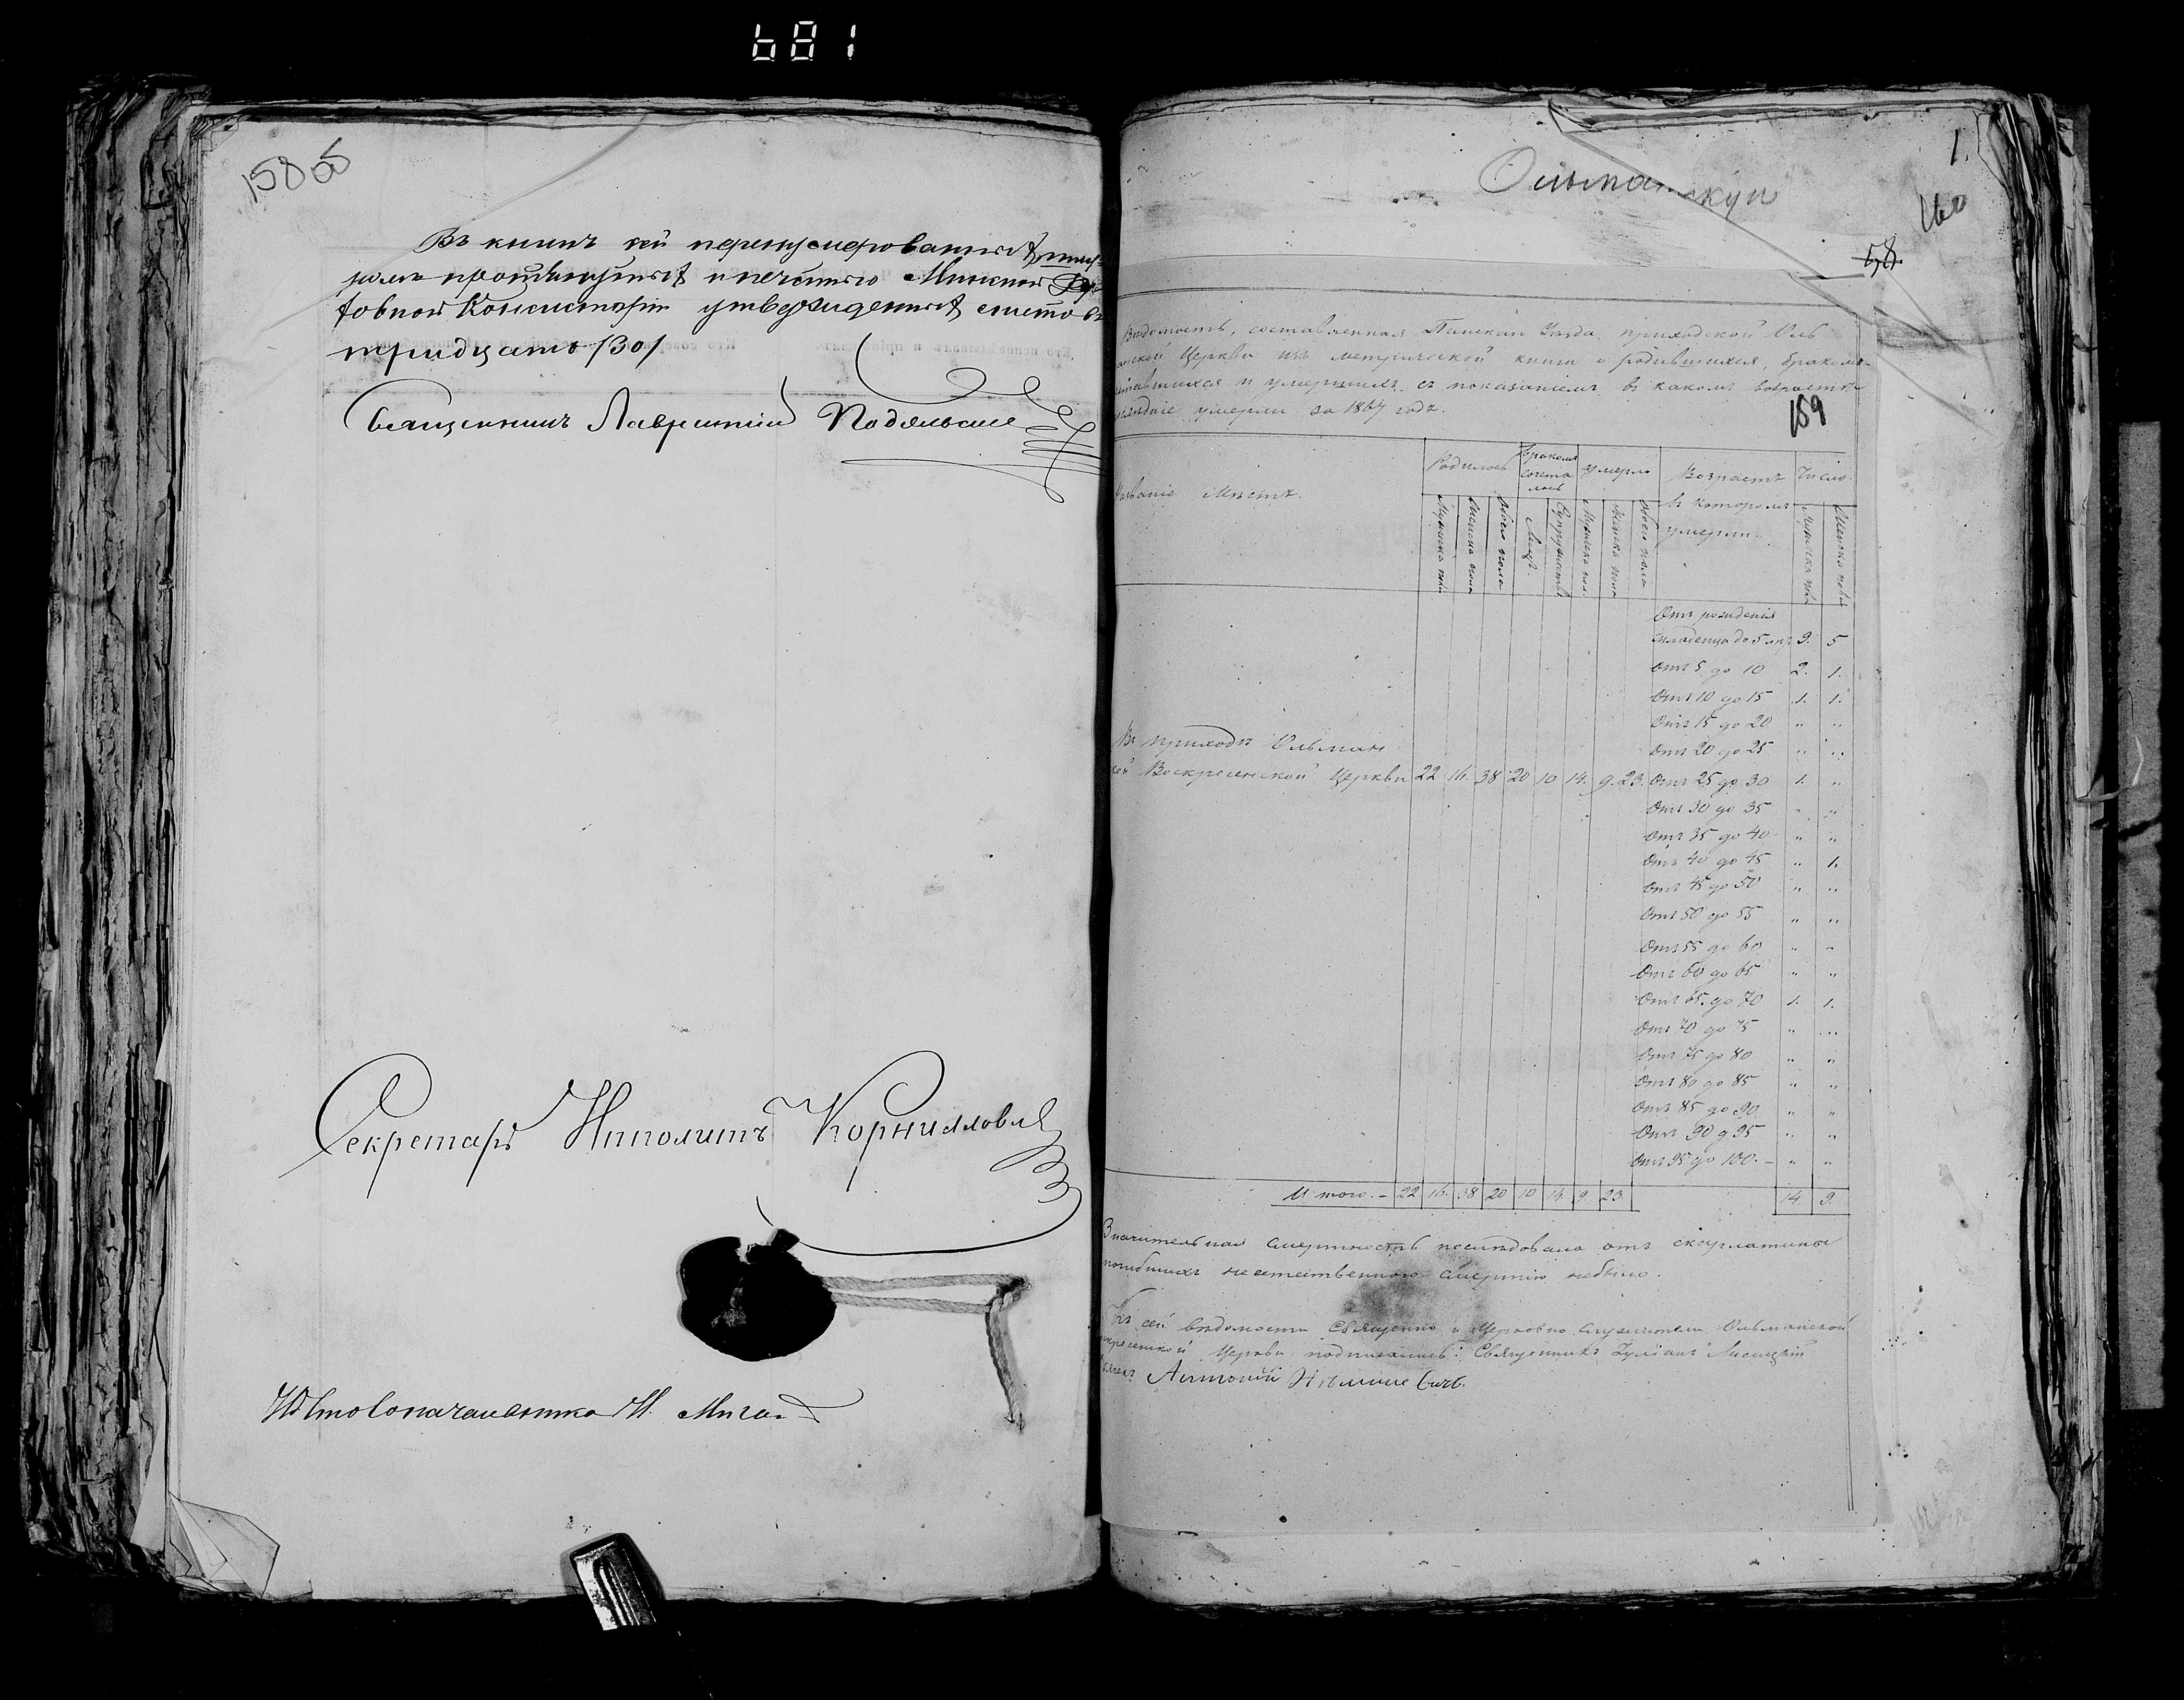 681
158 об
Въ книгѣ сей перенумерованныхъ, шну-
ромъ протянутыхъ и печатью Минской Ду-
ховной Консисторіи утвержденныхъ листовъ
тридцать /30/
Священникъ Лаврентій
Секретарь Ипполитъ
Столоначальника И.
1.
160
58.
Вѣдомость, составленная Пинскаго Уѣзда приходской Оль
манской Церкви изъ метрической книги о родившихся, бракомъ
сочетавшихся и умершихъ съ показаніемъ въ какомъ возрастѣ
послѣдніе умерли за 1867 годъ.
159
Названіе Мѣстъ.
Родилось
Бракомъ сочета лось
Умерло
Возрастъ въ которомъ умерли.
Число.
Мужска пола
Женска пола
Обоего пола
Лицъ.
Супружествъ
Мужеска пола
Женска пола
Обоего пола
Мужеска пола
Женска пола
Отъ рожденія
младенца до 5 лѣтъ 9. 5
Отъ 5 до 10 2. 1.
Отъ 10 до 15 1. 1.
Отъ 15 до 20 " "
Отъ 20 до 25 " "
Въ приходѣ Ольман
ской Воскресенской Церкви 22 16. 38 20 10 14. 9. 23. Отъ 25 до 30 1. "
Отъ 30 до 35 " "
Отъ 35 до 40 " "
Отъ 40 до 45 " 1.
Отъ 45 до 50 " "
Отъ 50 до 55 " "
Отъ 55 до 60 " "
Отъ 60 до 65 " "
Отъ 65 до 70 1. 1.
Отъ 70 до 75 " "
Отъ 75 до 80 " "
Отъ 80 до 85 " "
Отъ 85 до 90 " "
Отъ 90 д 95 " "
Отъ 95 до 100. – " "
Итого. – 22 16. 38 20 10 14 9. 23. 14 9.
Значительная смертность послѣдовала отъ скарлатины
погибшихъ неестественною смертію небыло.
Къ сей вѣдомости Священно и Церковно служители Ольманской
Воскресенской Церкви подписались: Священникъ Іуліанъ Лисицкій
Антоній